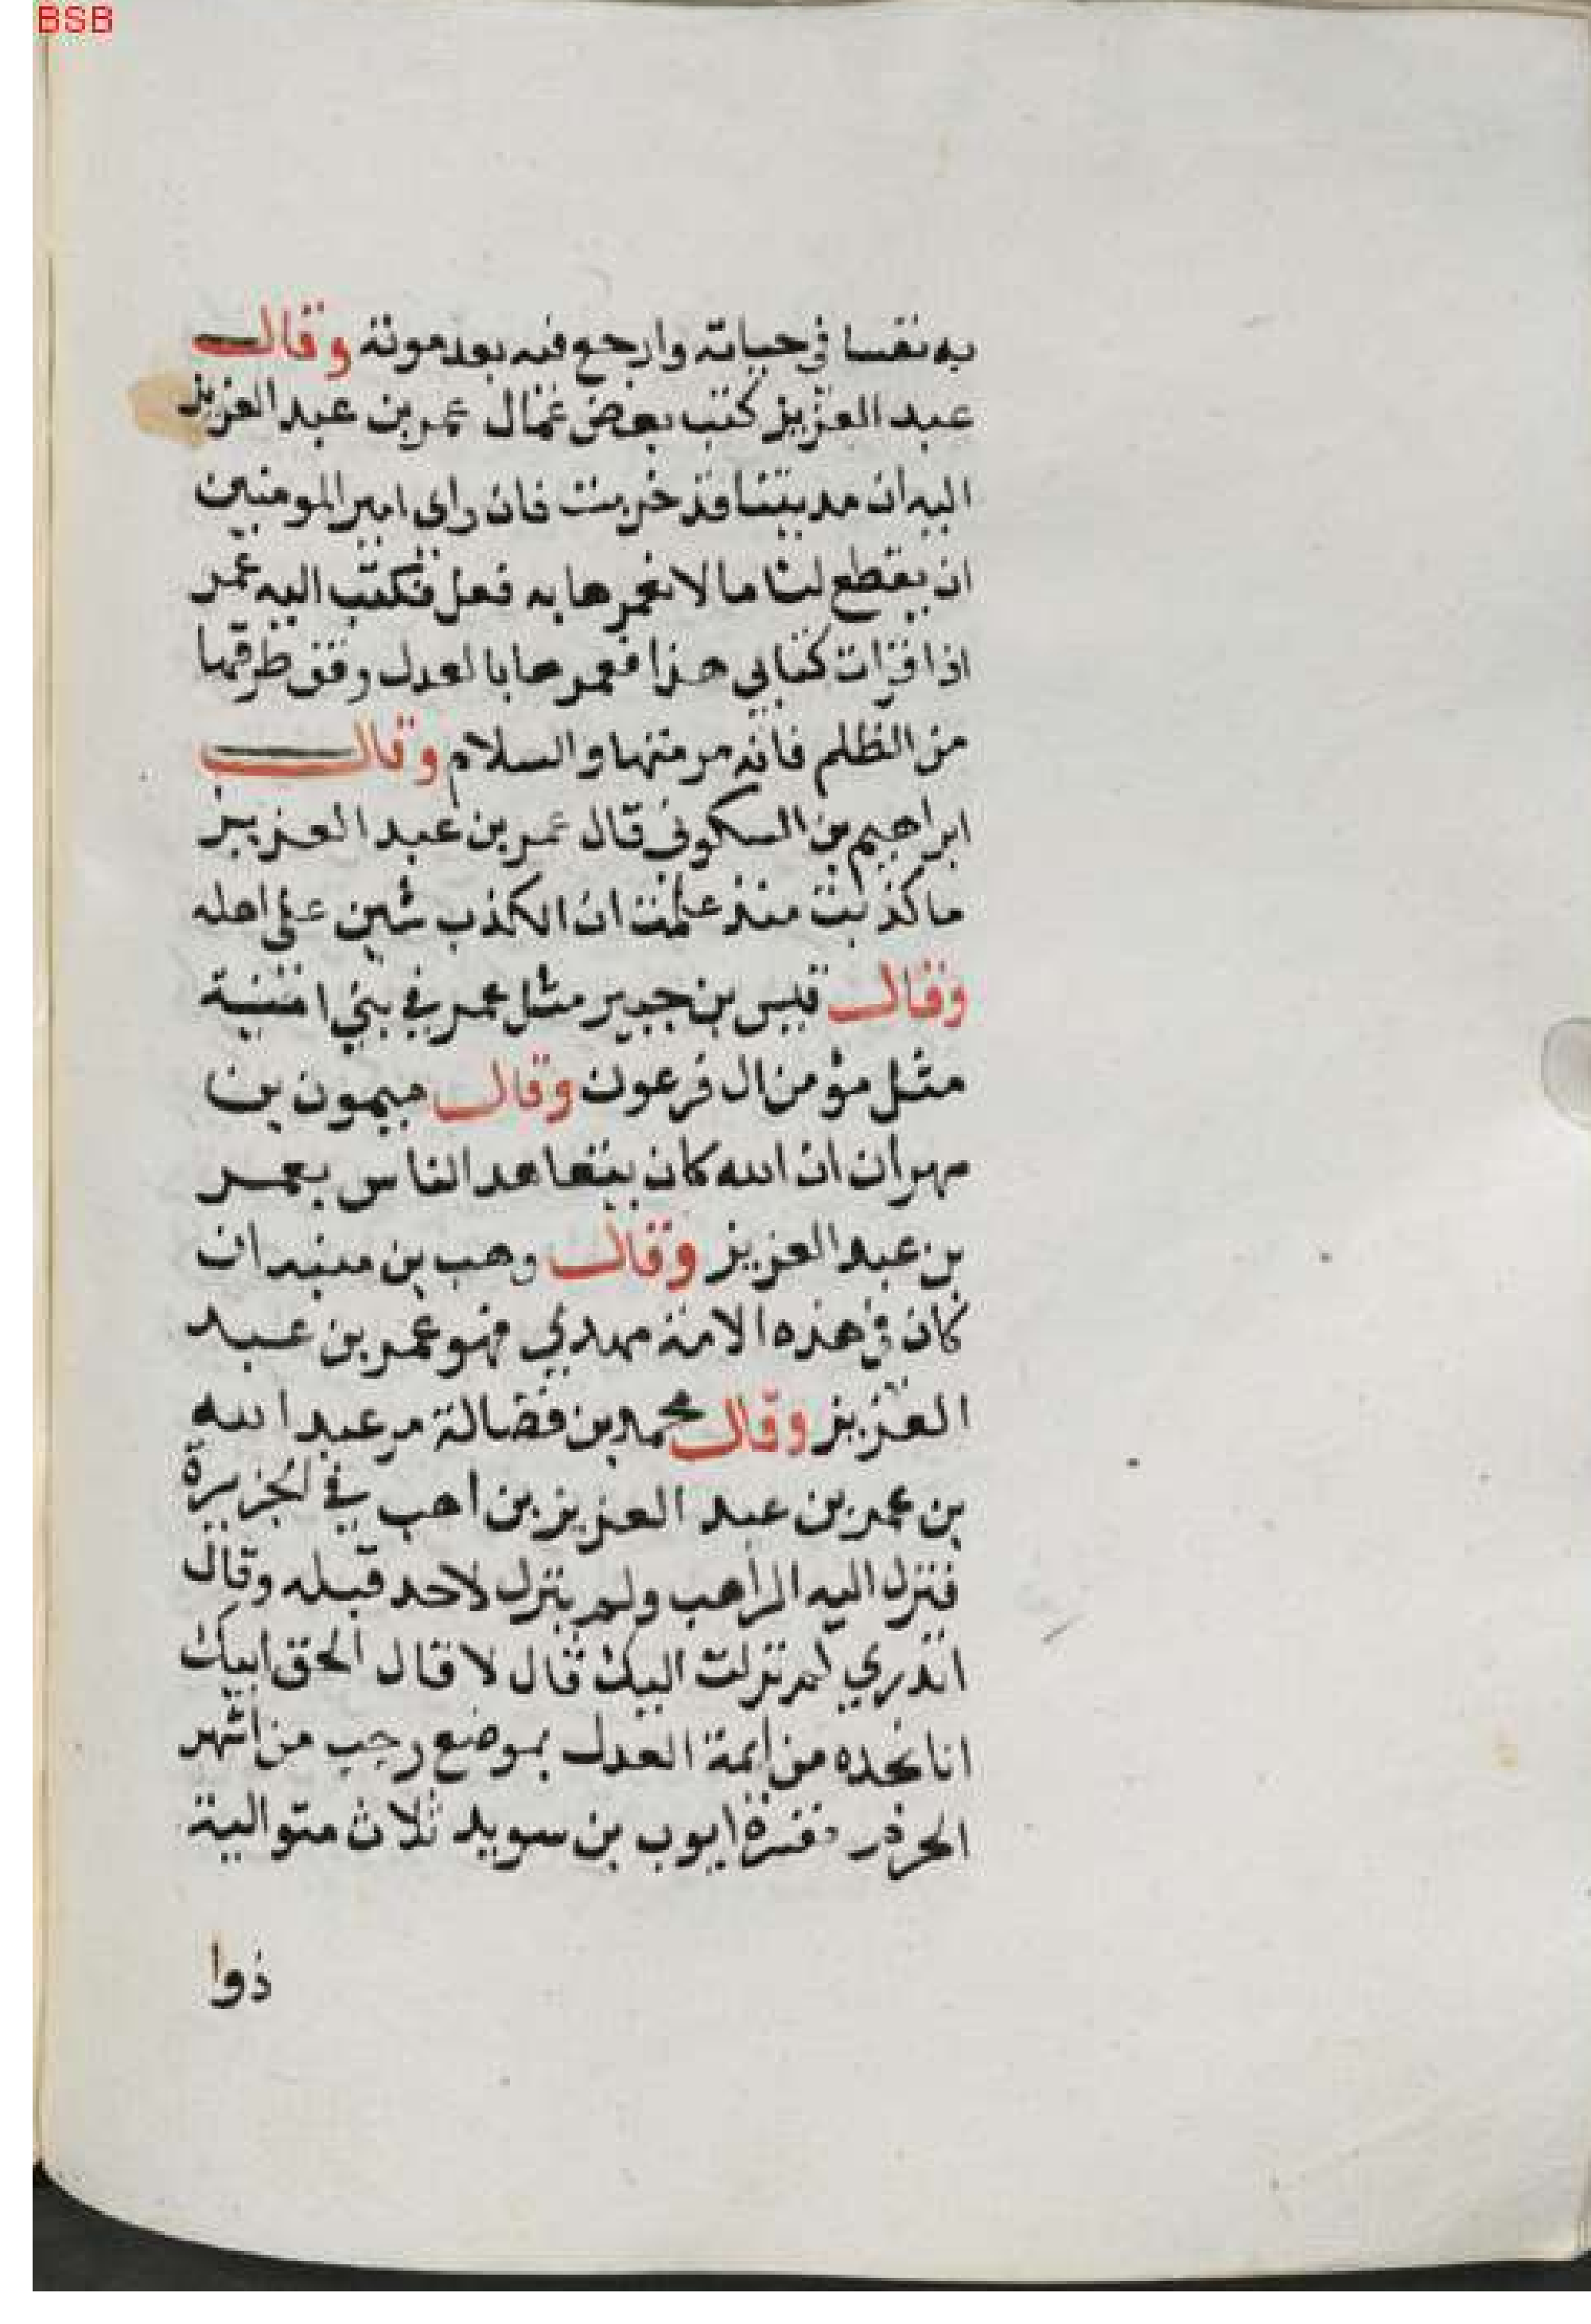 BSB
به نفسا في حياته وارجع فيه بعد موته وقال
عبد العزيز كتب بعض عمال عمر بن عبد العزيز
اليه ان مدينتنا قد خربت فان راى امير المومنين
ان يقطع لنا مالا نعمرها به فعل فكتب اليه عمر
اذا قرات كتابي هذا فعمرها بالعدل ونق طرقها
من الظلم فانه مرمتها والسلام وقال
ابراهيم بن السكوني قال عمر بن عبد العزيز
ما كذبت منذ علمت ان الكذب شين على اهله
وقال قيس بن جبير مثل عمر في بني امية
مثل مؤمن ال فرعون وقال ميمون بن
مهران ان الله كان يتعاهد الناس بعمر
بن عبد العزيز وقال وهب بن منبه ان
كان في هذه الامة مهدي فهو عمر بن عبد
العزيز وقال محمد بن فضالة مر عبد الله
بن عمر بن عبد العزيز بن اهب في الجزيرة
فنزل اليه الراهب ولم ينزل لاحد قبله وقال
اتدري لم نزلت اليك قال لا قال لحق ابيك
انا نجده من ايمة العدل بموضع رجب من اشهر
الحرم ايوب بن سويد ثلاث متوالية
ذوا